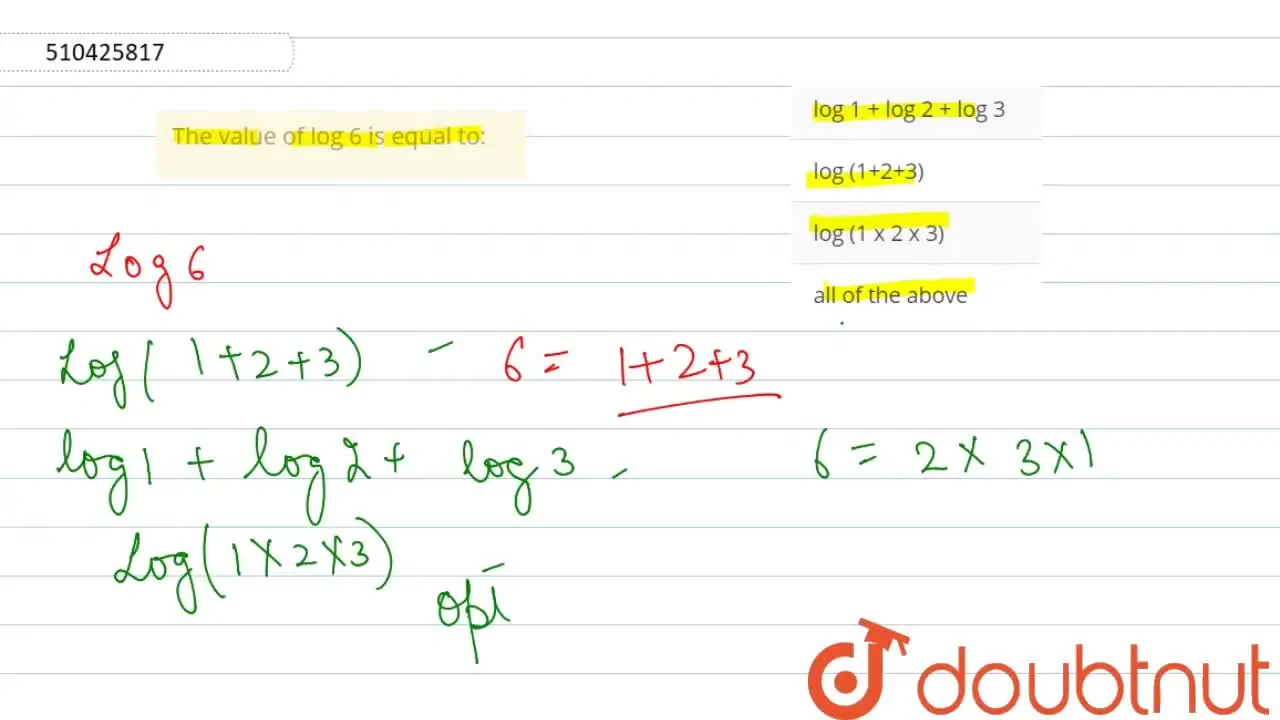 510425817
The value of log 6 is equal to:
log 1 + log 2 + log 3
log (1+2+3)
log (1 x 2 x 3)
all of the above
Log 6
Log( 1+2+3) - 6 = 1+2+3
log 1 + log 2 + log 3 - 6 = 2 × 3 × 1
Log(1×2×3)
opt
doubtnut